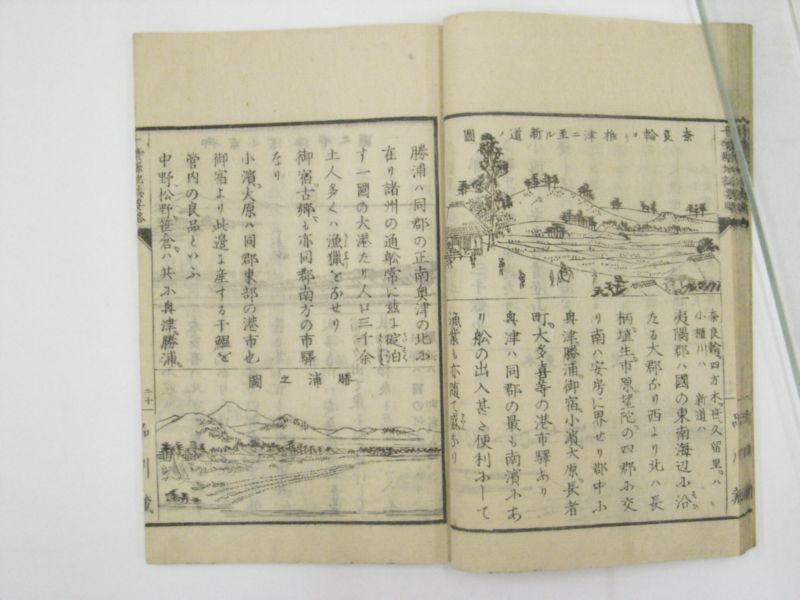 奈良輪ヨリ椎津ニ至ル新道ノ圖
奈良輪。四方木。世久留里。ハ
小櫃川ハ 新道ハ
夷隅郡ハ國の東南海辺ふ沿
たる大郡なり西より北ハ長
柄埴生市原望陀の四郡ふ交
り南ハ安房に界せり郡中ふ
奥津勝浦御宿小濱大原長者
町大多喜寺の港市驛あり
奥津ハ同郡の最も南濱ふあ
り舩の出入甚だ便利ふして
漁業も亦随て盛なり
勝浦ハ同郡の正南奥津の北ふ
在り諸州の通舩常に茲に碇泊
す一國の大港たり人口三千余
土人多くハ漁猟をなせり
御宿古郷も亦同郡南方の市驛
なり
小濱大原ハ同郡東部の港市也
御宿より此邊に産する干鰮を
管内の良品といふ
中野松野笹倉ハ共ふ奥津勝浦
勝浦之圖
二十